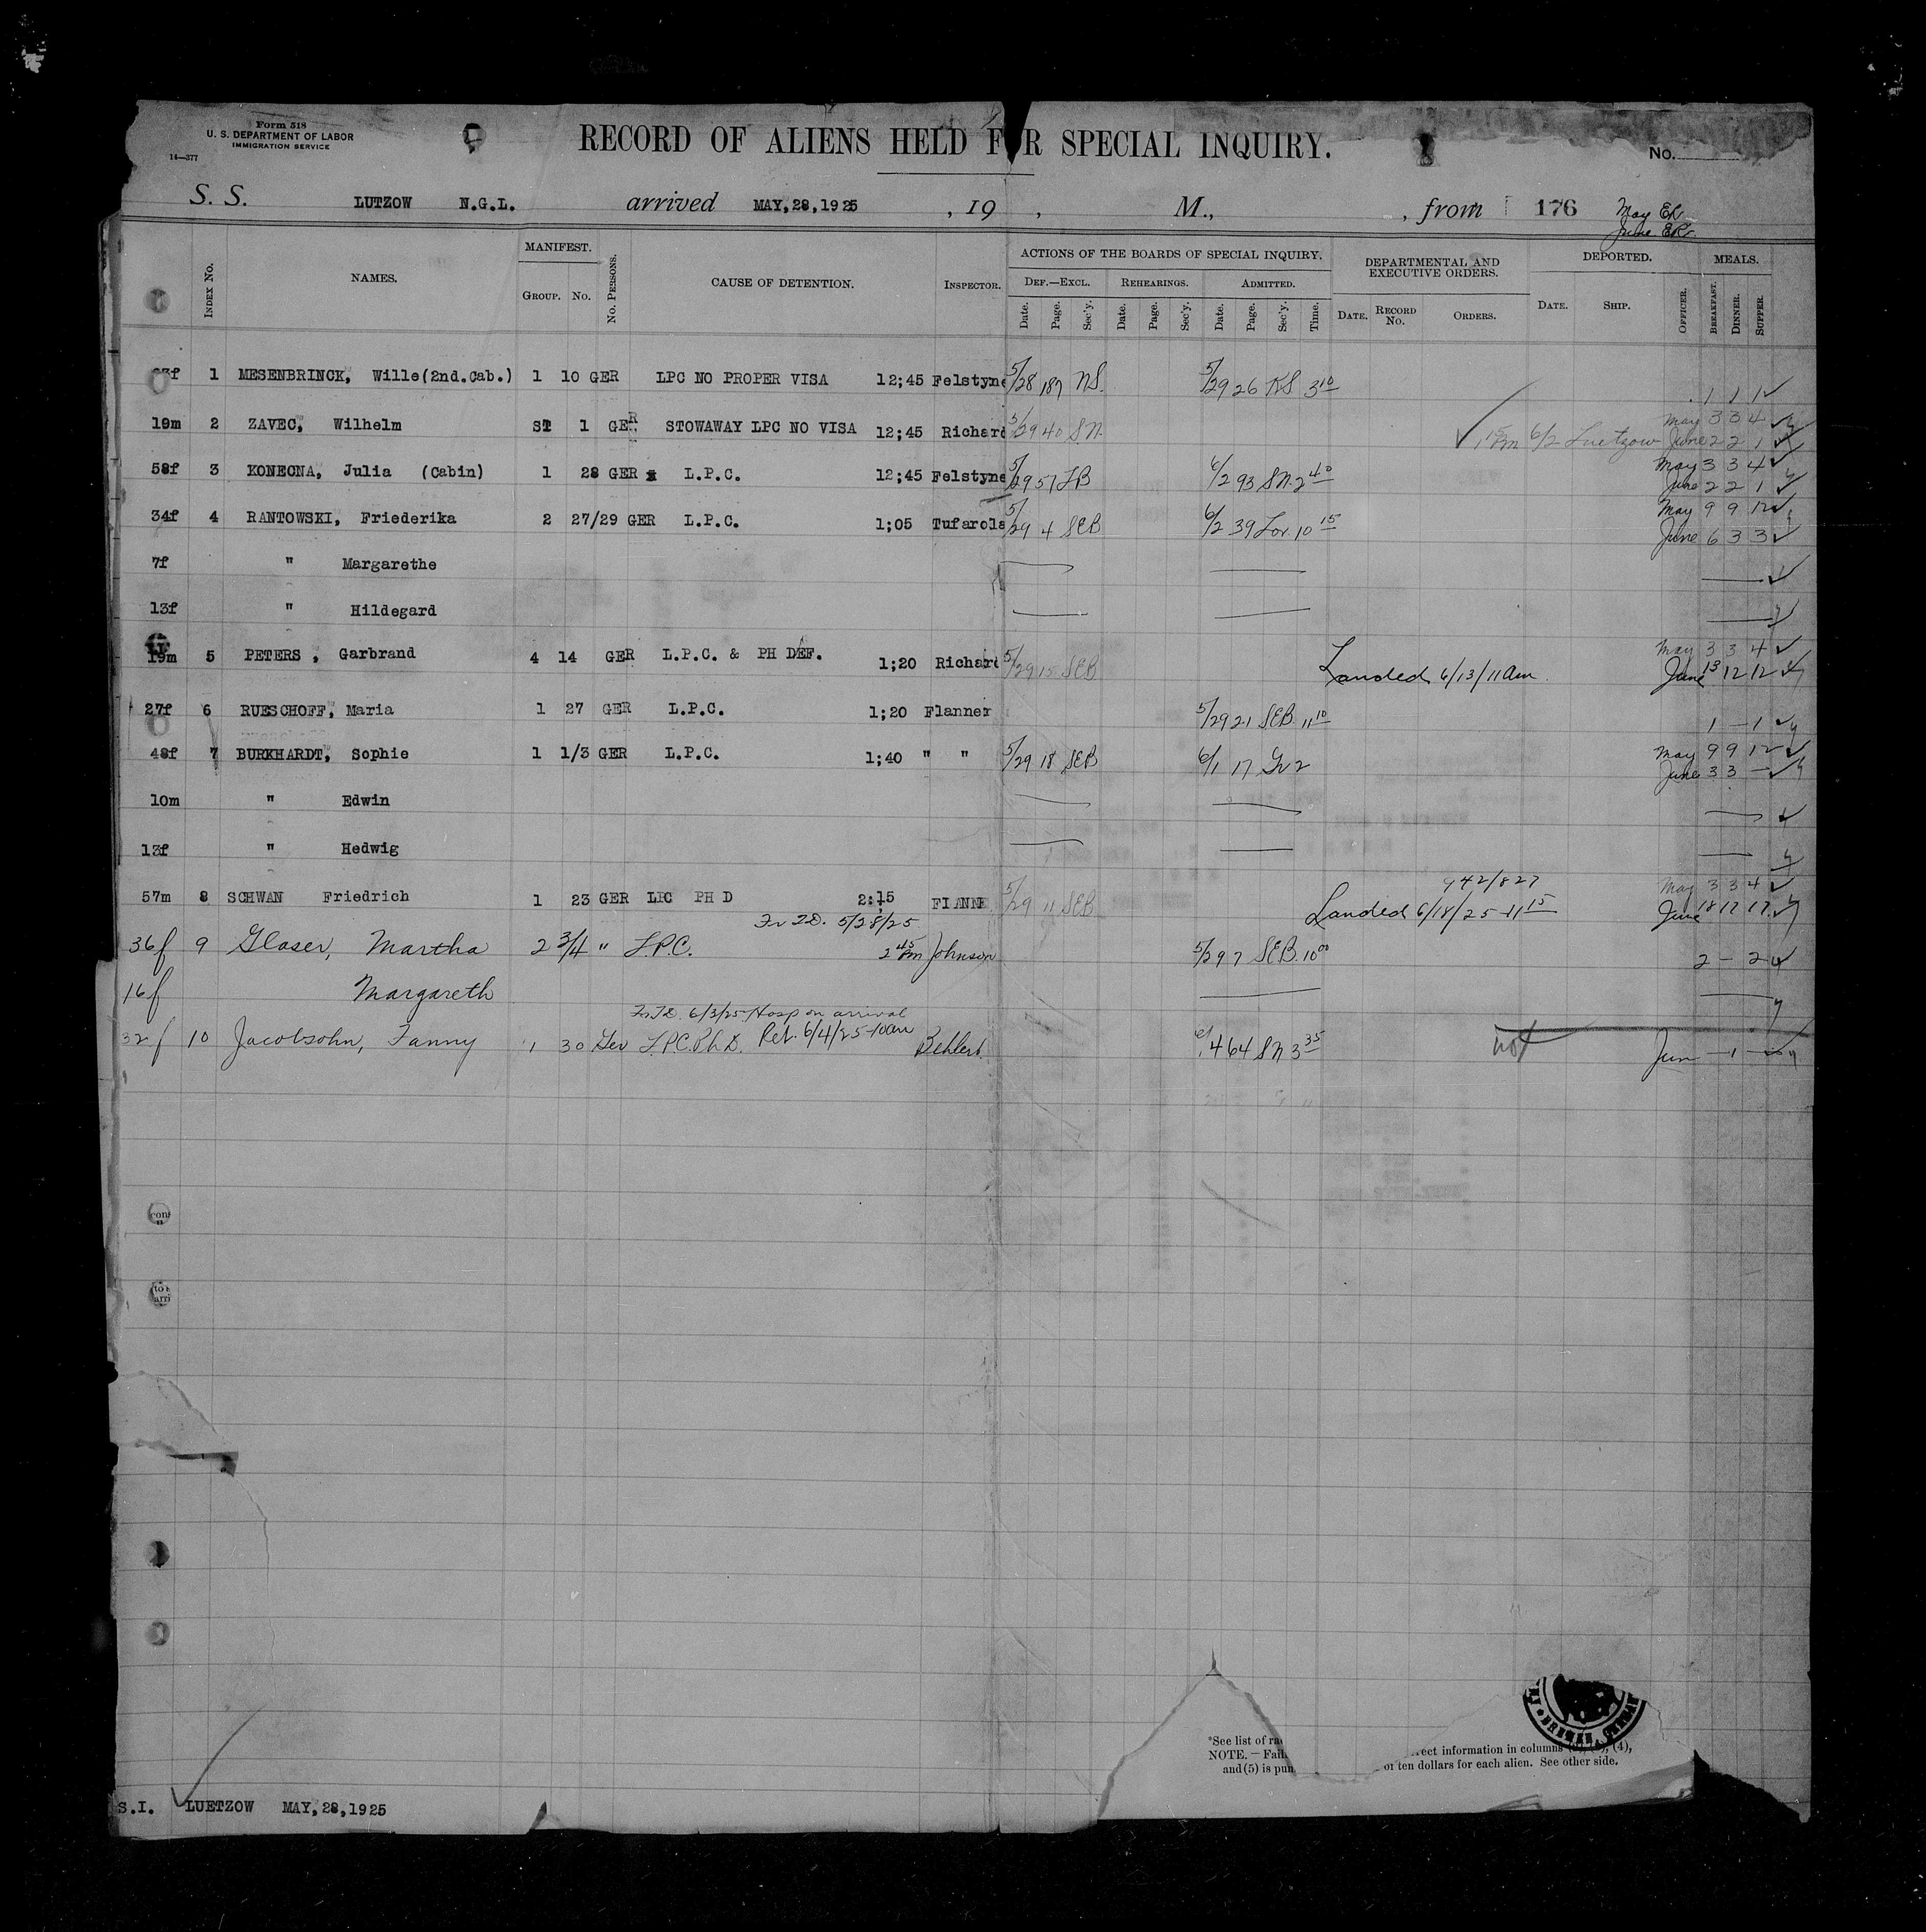 Form 518
U. S. DEPARTMENT OF LABOR
IMMIGRATION SERVICE
14—377
RECORD OF ALIENS HELD F R SPECIAL INQUIRY.
No.
S. S. LUTZOW N.G.L. arrived MAY,28,1925 , 19 , M., , from 176 May ER
June ER
INDEX No. NAMES. MANIFEST. GROUP. No. No. PERSONS. CAUSE OF DETENTION. INSPECTOR. ACTIONS OF THE BOARDS OF SPECIAL INQUIRY. DEF.—EXCL. Date. Page. Sec'y. REHEARINGS. Date. Page. Sec'y. ADMITTED. Date. Page. Sec'y. Time. DEPARTMENTAL AND EXECUTIVE ORDERS. DATE. RECORD No. ORDERS. DEPORTED. DATE. SHIP. OFFICER. MEALS. BREAKFAST. DINNER. SUPPER.
f 1 MESENBRINCK, Wille(2nd.Cab.) 1 10 GER LPC NO PROPER VISA 12;45 Felstyne 5/28 187 NS. 5/29 26 KS 3 10 1 1 1
19m 2 ZAVEC, Wilhelm ST 1 GER STOWAWAY LPC NO VISA 12;45 Richard 5/29 40 SN. 6/2 Luetzow May 3 3 4
June 2 2 1
58f 3 KONECNA, Julia (Cabin) 1 28 GER L.P.C. 12;45 Felstyne 5/29 57 LB 6/2 93 SN. 2 40 May 3 3 4
June 2 2 1
34f 4 RANTOWSKI, Friederika 2 27/29 GER L.P.C. 1;05 Tufarola 5/29 4 SEB 6/2 39 Lov. 10 15 May 9 9 12
June 6 3 3
7f " Margarethe
13f " Hildegard
19m 5 PETERS , Garbrand 4 14 GER L.P.C. & PH DEF. 1;20 Richard 5/29 15 SEB Landed 6/13/11am May 3 3 4
June 13 12 12
27f 6 RUESCHOFF, Maria 1 27 GER L.P.C. 1;20 Flanner 5/29 21 SEB. 11 10 1 — 1
48f 7 BURKHARDT, Sophie 1 1/3 GER L.P.C. 1;40 " " 5/29 18 SEB 6/1 17 Gv 2 May 9 9 12
June 3 3 —
10m " Edwin
13f " Hedwig
942/827
57m 8 SCHWAN Friedrich 1 23 GER LIC PH D 2;15 FIANNE 5/29 11 SEB Landed 6/18/25 11 15 May 3 3 4
June 18 17 17
Fr T.D. 5/28/25
36f 9 Glaser, Martha 2 3/4 " L.P.C. 2 45 Pm Johnson 5/29 7 SEB. 10 00 2 — 2
16f Margareth
Fr T.D. 6/3/25 Hosp on arrival
32f 10 Jacobsohn, Fanny 1 30 Ger L.P.C. Ph.D. Ret. 6/4/25-10am Behlert. 64 SN 3 35 not Jun — 1 —
con
"
to
arri
*See list of ra
NOTE. — Fail rect information in columns (4),
and (5) is pun or ten dollars for each alien. See other side.
BREMEN,
S.I. LUETZOW MAY,28,1925